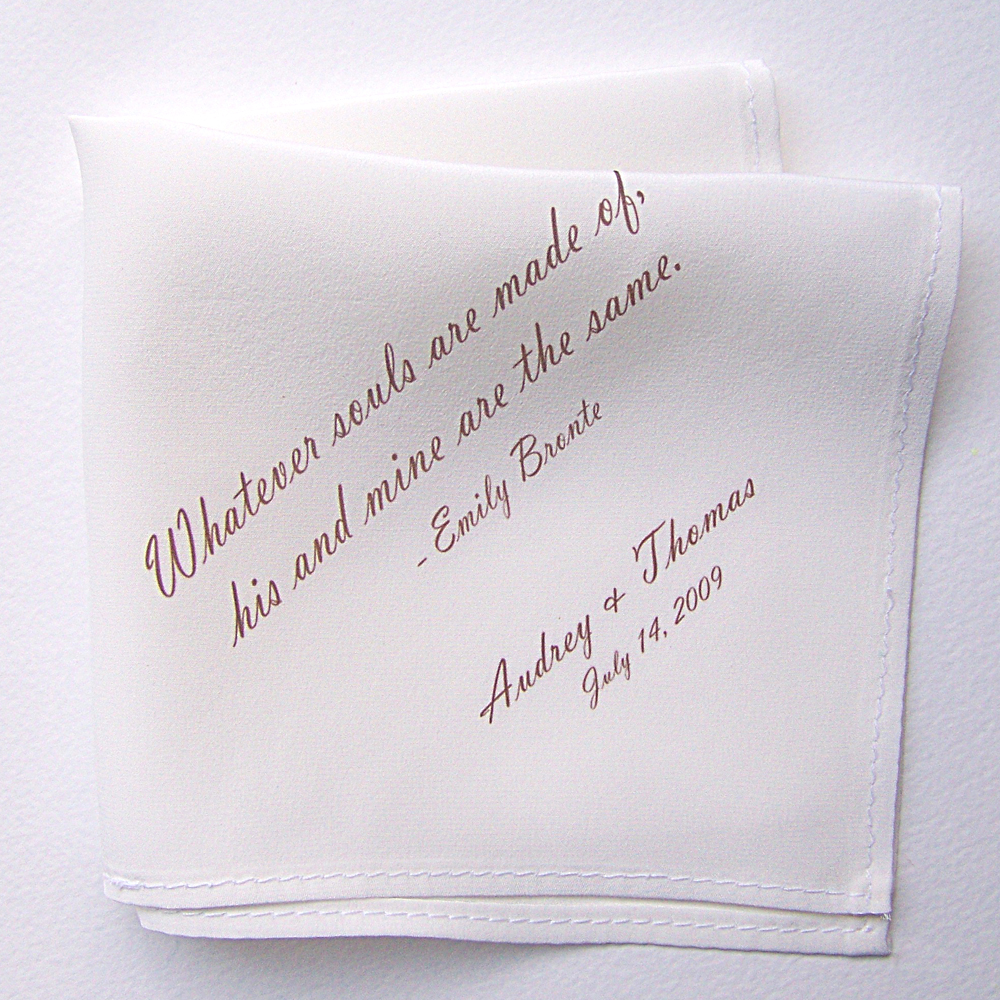 Whatever souls are made of,
his and mine are the same.
- Emily Bronte
Audrey & Thomas
July 14, 2009